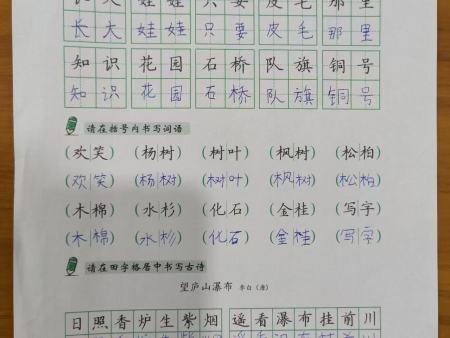 长大 娃娃 只要 皮毛 那里
长大 娃娃 只要 皮毛 那里
知识 花园 石桥 队旗 铜号
知识 花园 石桥 队旗 铜号
请在括号内书写词语
(欢笑) (杨树) (树叶) (枫树) (松柏)
(欢笑) (杨树) (树叶) (枫树) (松柏)
(木棉) (水杉) (化石) (金桂) (写字)
(木棉) (水杉) (化石) (金桂) (写字)
请在田字格居中书写古诗
望庐山瀑布 李白(唐)
日照香炉生紫烟 遥看瀑布挂前川